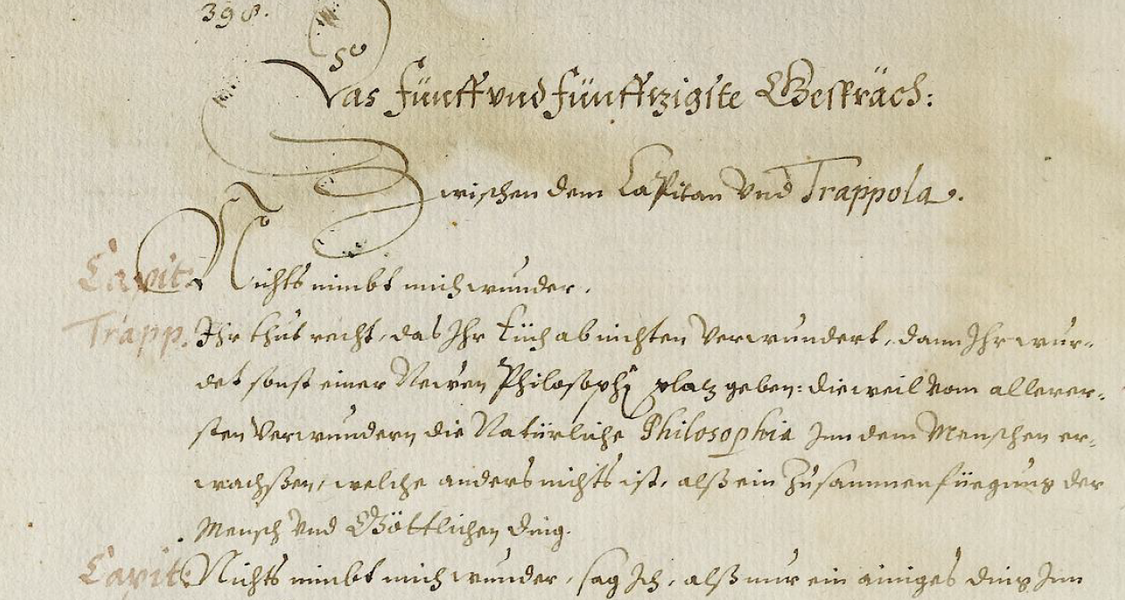 398.
Das fünff vnd fünffzigste Gespräch:
Zwischen dem Capitan Vnd Trappola.
Capit: Nichts nimbt mich wunder.
Trapp. Ihr thut recht, das Ihr Euch ab nichten Verwundert, dann Ihr wur-
det sonst einer Newen Philosophj platz geben: dieweil vom allerer-
sten Verwundern die Natürliche Philosophia Inn dem Menschen er-
wachßen, welche anders nichts ist, alß ein Zusammenfüegung der
Mensch Vnd Göttlichen ding.
Capit: Nichts nimbt mich wunder, sag Ich, alß nur ein ainiges ding Inn